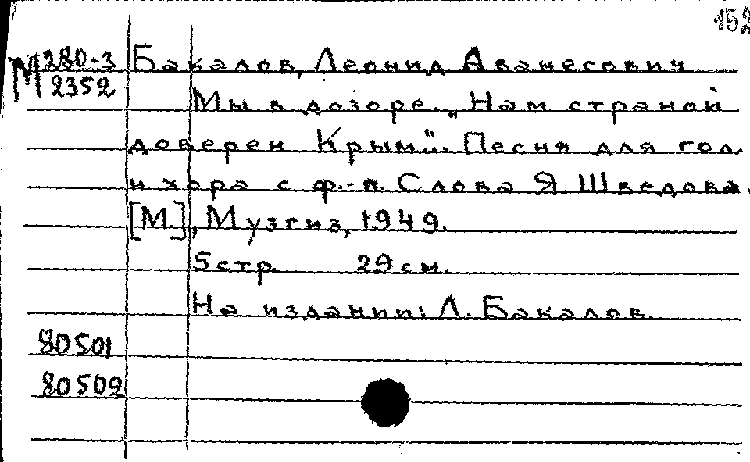 152
М 280-3
2352
Бакалов, Леонид Аванесович
Мы в дозоре. „Нам страной
доверен Крым“. Песня для гол.
и хора с ф.-п. Слова Я Шведова.
[М.], Музгиз, 1949.
5 стр. 29 см.
На издании: Л. Бакалов.
80501
80502